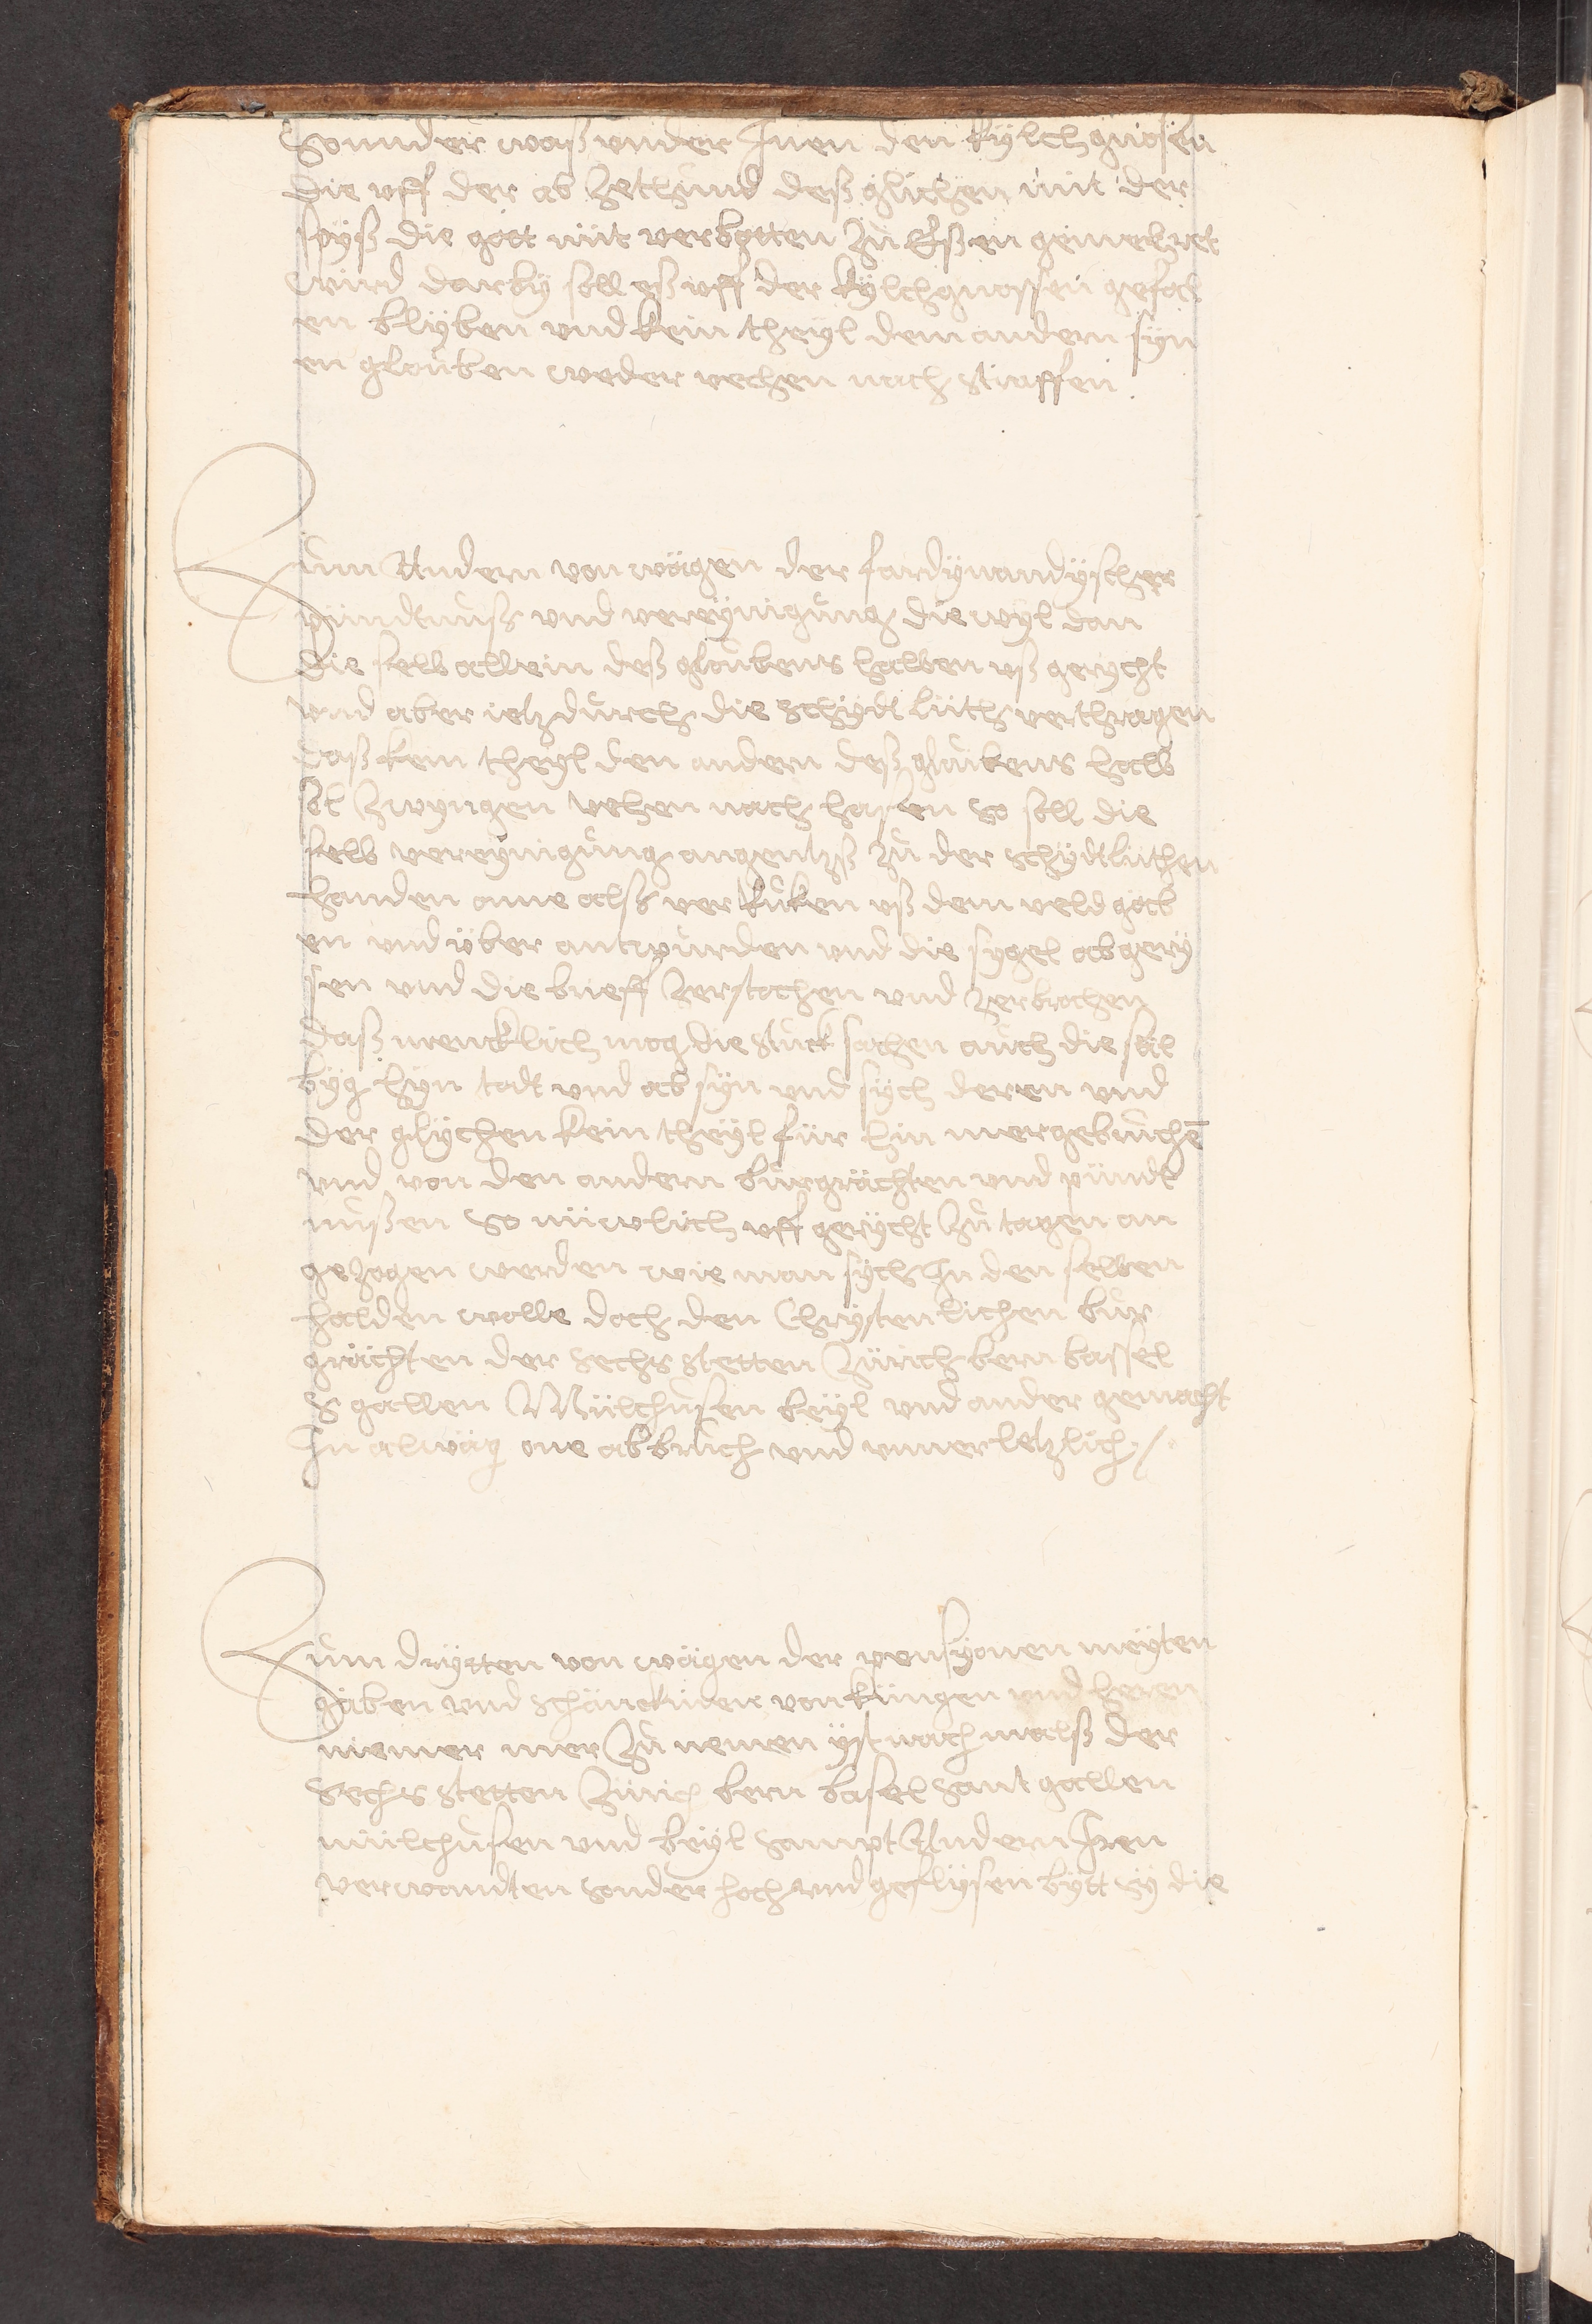 Sonnder waß vnder Jnen den kylchgnosen
die vff der ab zethünd deß glichen mit der
spyß die gott nüt verbotten zů Eßen gemelret
wird darby soll eß vff der kylchgnossen gefal
en blyben vnd kein theyl dem andern syn
en glouben weder vechen nach straffen
Zum Andern von wägen der fardynandyscher
pündtnuß vnd vereynigung die wyl dan
die selb allein deß gloubens halben vß gerycht
vnd aber ietz durch die schydt lüth verthragen
daß kein theyl den andern deß gloubens halb
sol zwyngen vehen nach hasen so soll die
selb vereynigung angentz zů der schydtlüthen
handen ane alß ver ruken vß dem veld gäb
en vnd über antwurden vnd die sygel ab gery
sen vnd die brieff zerstochen vnd zerbrochen
daß mencklich mög die stuck sachen auch die sol
byg hyn todt vnd ab syn vnd sych deren vnd
der glychen kein theyl für hin mer gebruchē
vnd von den andern burgrächten vnd pündt
nußen so nüwlich vff gerycht zů tagen an
gezogen werden wie man sych jn den selben
halden wolle doch den Chrystenlichen bur
grächten der sechs stetten Zürich bern bassel
S gallen Mülhusen beyl vnd ander gemacht
Jn alwäg one abbruch vnd vnuerletzlich
Zum drytten von wägen der pensyonen meyten
gaben vnd schänckinen von küngen vnd heren
niemer mer zů nemen yst nach malß der
Sechs stetten Zürich bern basel sant gallen
mülhusen vnd beyl sampt Andern Jren
verwandten sonder hoch vnd geflysen bytt sy die